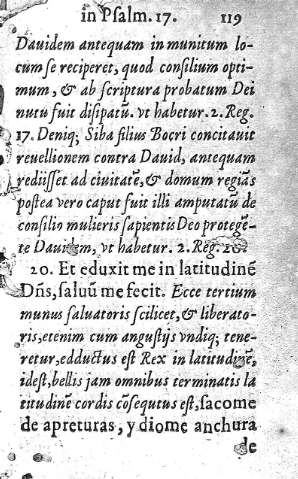 in Psalm. 17. 119
Dauidem antequam in munitum lo-
cum se reciperet, quod consilium opti-
mum, & ab scriptura probatum Dei
nutu fuit disipatũ. vt habetur. 2. Reg.
17. Deniq; Siba filius Bocri concitauit
reuellionem contra Dauid, antequam
rediisset ad ciuitatẽ, & domum regiãs
postea vero caput fuit illi amputatũ de
consilio mulieris sapientis Deo protegẽ-
te Dauidem, vt habetur. 2. Reg. 20.
20. Et eduxit me in latitudinẽ
Dñs, saluũ me fecit. Ecce tertium
munus saluatoris scilicet, & liberato-
ris, etenim cum angustijs vndiq; tene-
retur, edductus est Rex in latitudinẽ,
idest, bellis jam omnibus terminatis la
titudinẽ cordis cõsequtus est, sacome
de apreturas, y diome anchura
de